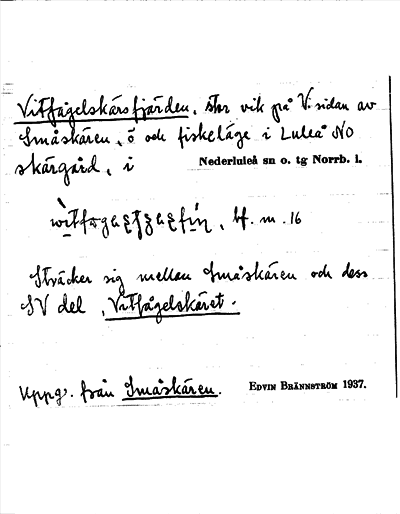 Vitfågelskärsfjärden, stor vik på V. sidan av
Småskären, ö och fiskeläge i Luleå NO
skärgård, i Nederluleå sn o. tg Norrb. l.
bf. m. 16
Sträcker sig mellan Småskären och dess
SV del, Vitfågelskäret.
Uppg. från Småskären. EDVIN BRÄNNSTRÖM 1937.